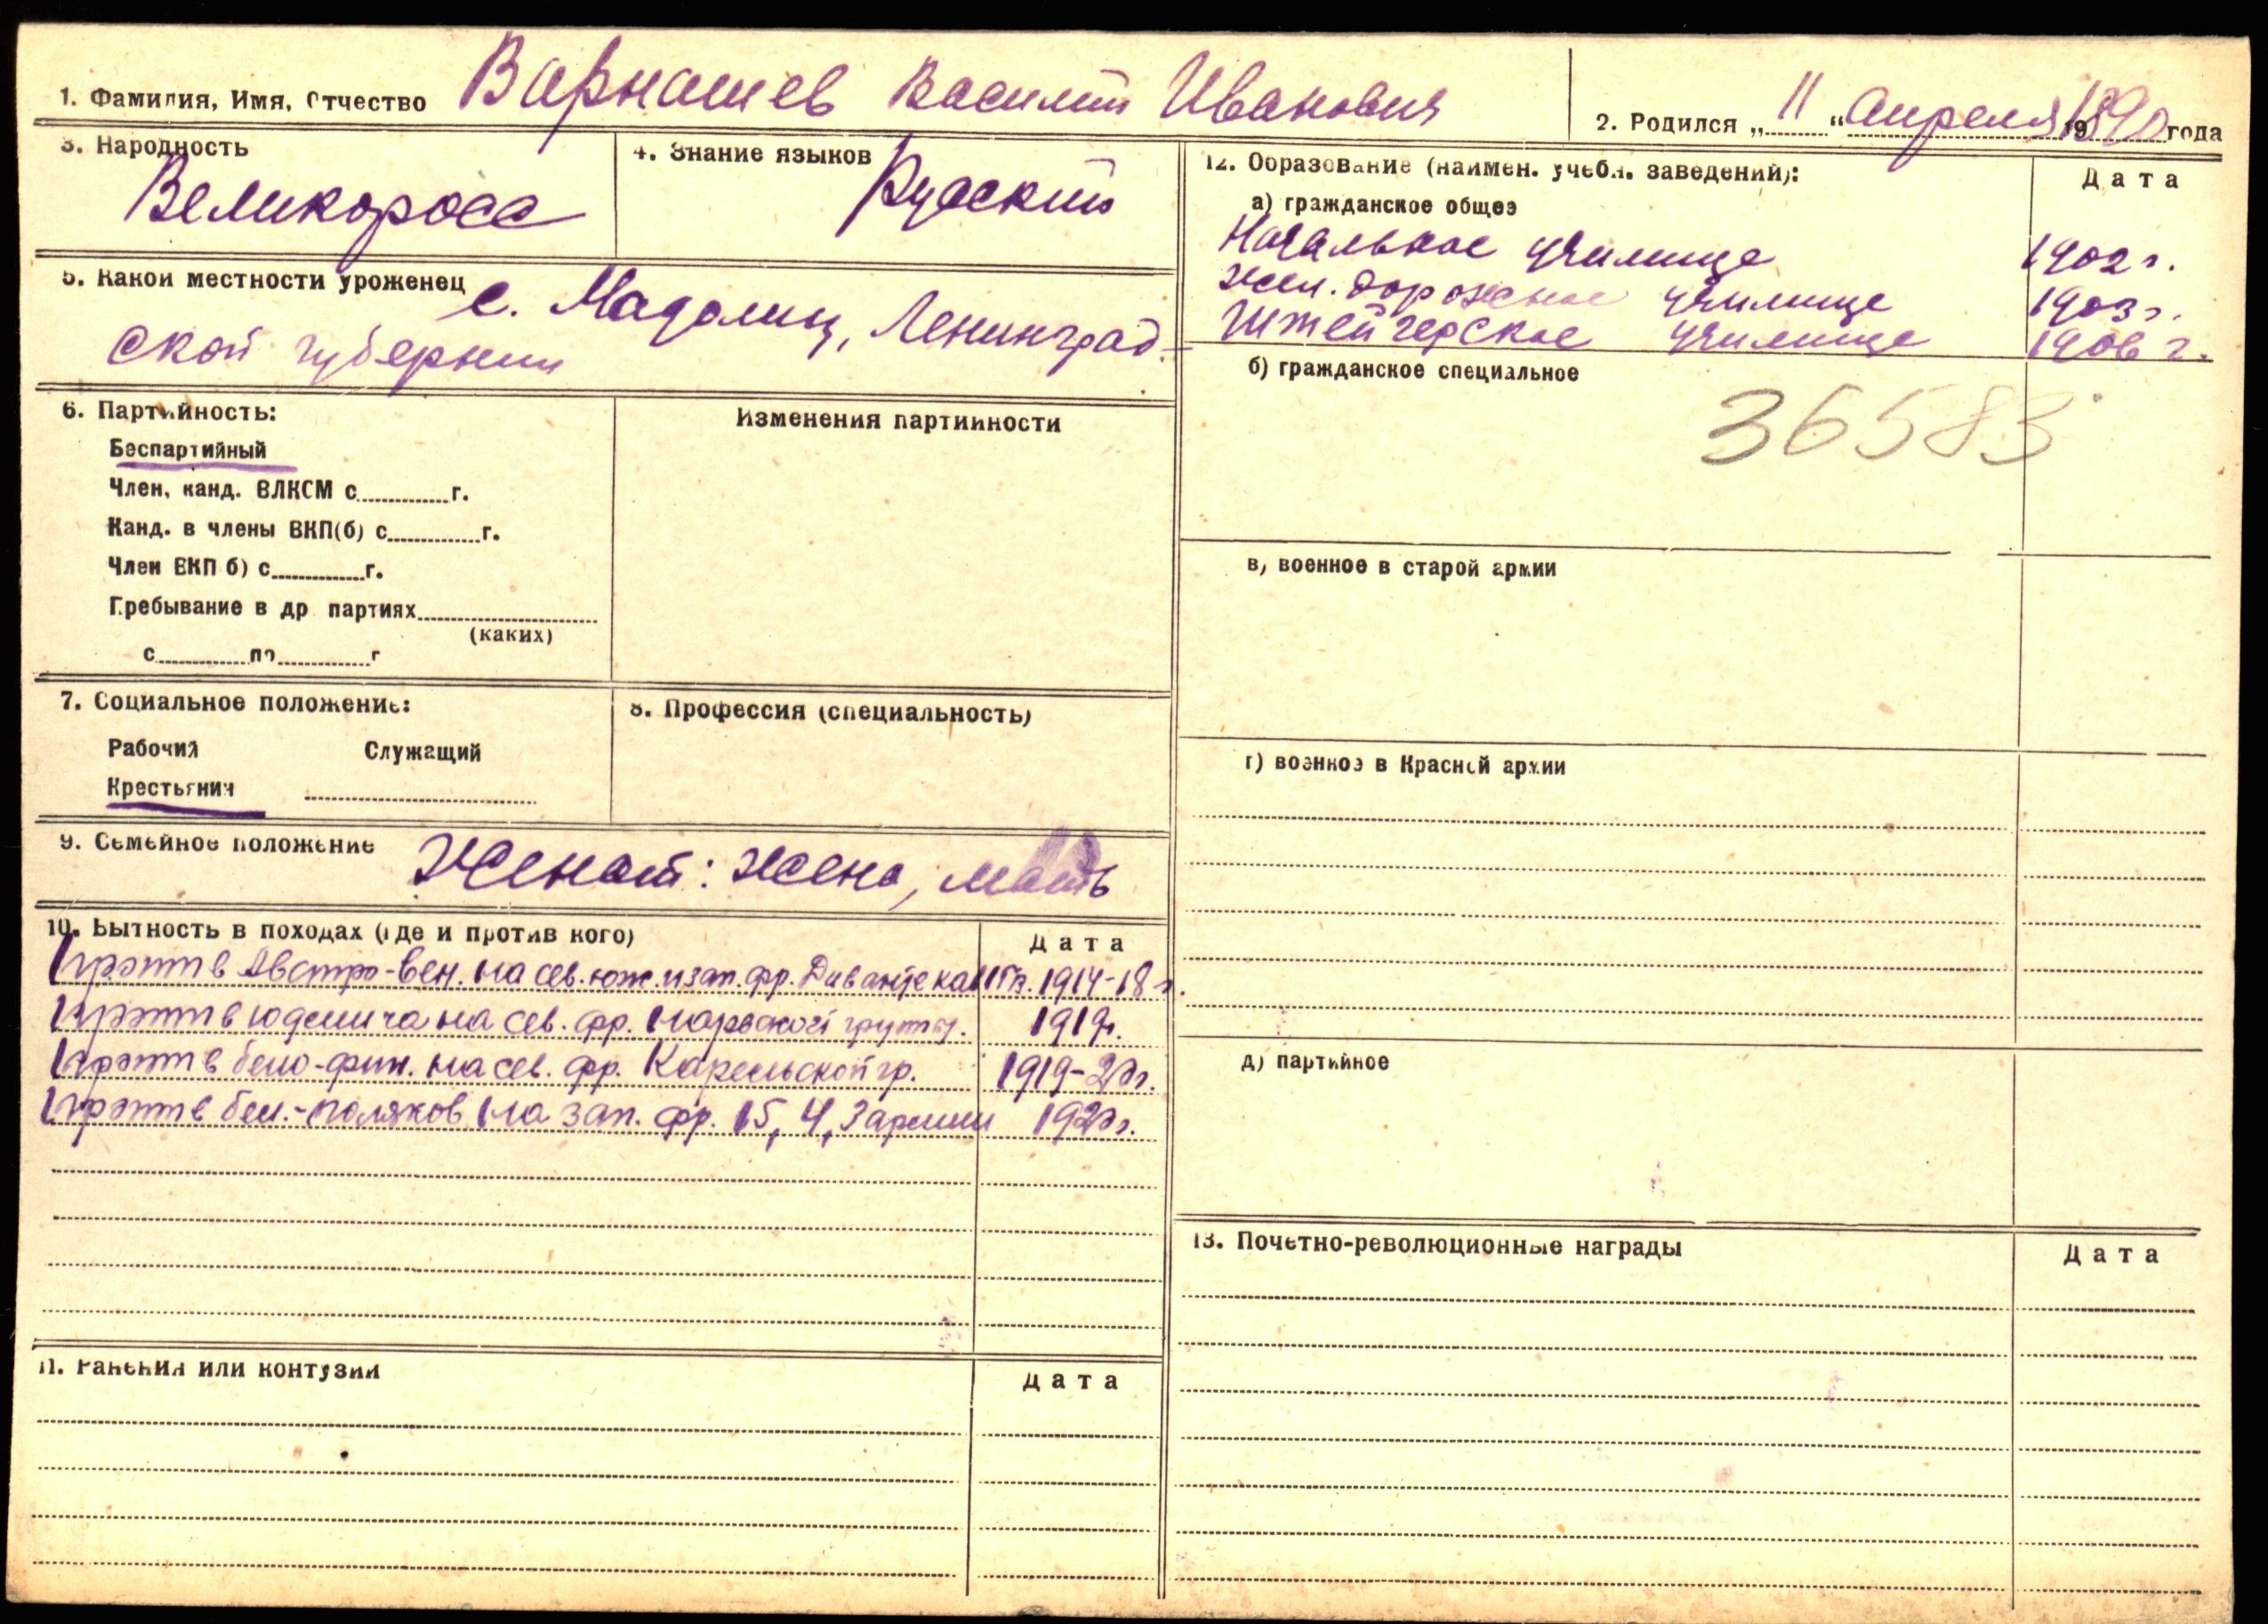 1. Фамилия, Имя, Отчество Варнашев Василий Иванович
2. Родился „ 11 “ апреля 1890 года
3. Народность
Великоросс
4. Знание языков Русский
5. Какой местности уроженец с. Мадолиц, Ленинград-
ской губернии
6. Партийность:
Беспартийный
Член, канд. ВЛКСМ с г.
Канд. в члены ВКП(б) с г.
Член ВКП б) с г.
Пребывание в др партиях
(каких)
с по г
Изменения партийности
7. Социальное положение:
Рабочий Служащий
Крестьянин
8. Профессия (специальность)
9. Семейное положение Женат: жена, мать
10. Бытность в походах (где и против кого) Дата
Против Австро-Вен. на сев. юж. и зап. фр. 1914-18 г.
Против Юденича на сев. фр. Нарвской группы. 1919г.
Против бело-фин. на сев. фр. Карельской гр. 1919-20г.
Против бел.-поляков на зап. фр. 15, 4, 3 армии 1920г.
11. Ранения или контузии Дата
12. Образование (наимен. учебн. заведений): Дата
а) гражданское общее
Начальное училище 1902 г.
жел. дорожное училище 1903 г.
Штейгерское училище 1906 г.
б) гражданское специальное
36583
в) военное в старой армии
г) военное в Красной армии
д) партийное
13. Почетно-революционные награды Дата